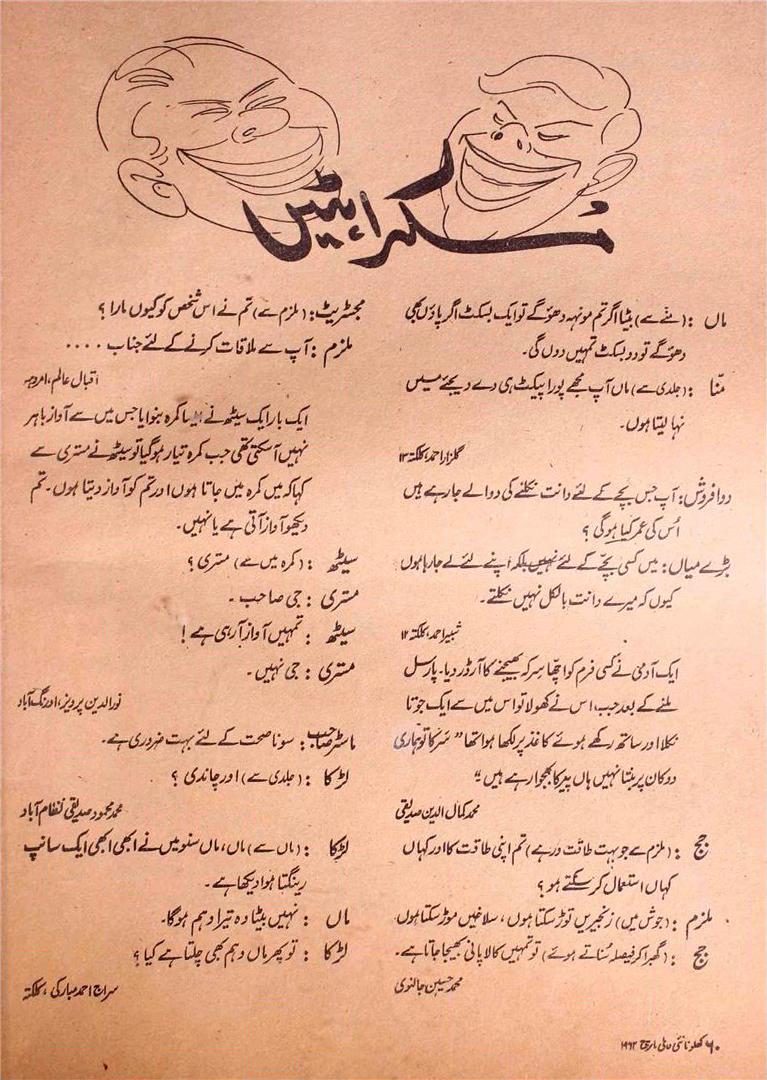 مُسکراہٹیں
ماں : (منے سے) بیٹا اگر تم مونہہ دھوؤ گے تو ایک بسکٹ اگر پاؤں بھی
دھوؤ گے تو دو بسکٹ تمہیں دوں گی۔
منّا : (جلدی سے) ماں آپ مجھے پورا پیکٹ ہی دے دیجئے میں
نہا لیتا ہوں۔
گلزار احمد، کلکتہ ۱۲
دوا فروش: آپ جس بچے کے لئے دانت نکلنے کی دوا لے جا رہے ہیں
اُس کی عمر کیا ہوگی ؟
بڑے میاں: میں کسی بچّے کے لئے نہیں بلکہ اپنے لئے لے جا رہا ہوں
کیوں کہ میرے دانت بالکل نہیں نکلتے۔
شبیر احمد، کلکتہ ۱۲
ایک آدمی نے کسی فرم کو اچّھا سِرکہ بھیجنے کا آرڈر دیا۔ پارسل
ملنے کے بعد جب اس نے کھولا تو اس میں سے ایک جوتا
نکلا اور ساتھ رکھے ہوئے کاغذ پر لکھا ہوا تھا ”سَر کا تو ہماری
دوکان پر بنتا نہیں ہاں پیر کا بھجوا رہے ہیں“
محمد کمال الدین صدیقی
جج : (ملزم سے جو بہت طاقت ور ہے) تم اپنی طاقت کا اور کہاں
کہاں استعمال کر سکتے ہو ؟
ملزم : (جوش میں) زنجیریں توڑ سکتا ہوں، سلاخیں موڑ سکتا ہوں
جج : (گھبرا کر فیصلہ سُناتے ہوئے) تو تمہیں کالا پانی بھیجا جاتا ہے۔
محمد حسین جالنوی
مجسٹریٹ: (ملزم سے) تم نے اس شخص کو کیوں مارا ؟
ملزم : آپ سے ملاقات کرنے کے لئے جناب ....
اقبال عالم، امروہہ
ایک بار ایک سیٹھ نے ایسا کمرہ بنوایا جس میں سے آواز باہر
نہیں آسکتی تھی جب کمرہ تیار ہوگیا تو سیٹھ نے مستری سے
کہا کہ میں کمرہ میں جاتا ہوں اور تم کو آواز دیتا ہوں۔ تم
دیکھو آواز آتی ہے یا نہیں۔
سیٹھ : (کمرہ میں سے) مستری ؟
مستری : جی صاحب۔
سیٹھ : تمہیں آواز آرہی ہے !
مستری : جی نہیں۔
نور الدین پرویز، اورنگ آباد
ماسٹر صاحب: سونا صحت کے لئے بہت ضروری ہے۔
لڑکا : (جلدی سے) اور چاندی ؟
محمد محمود صدیقی نظام آباد
لڑکا : (ماں سے) ماں، ماں سنو میں نے ابھی ابھی ایک سانپ
رینگتا ہوا دیکھا ہے۔
ماں : نہیں بیٹا وہ تیرا وہم ہوگا۔
لڑکا : تو پھر ماں وہم بھی چلتا ہے کیا ؟
سراج احمد مبارکی، کلکتہ
۶۰ کھلونا نئی دہلی مارچ ۱۹۶۲